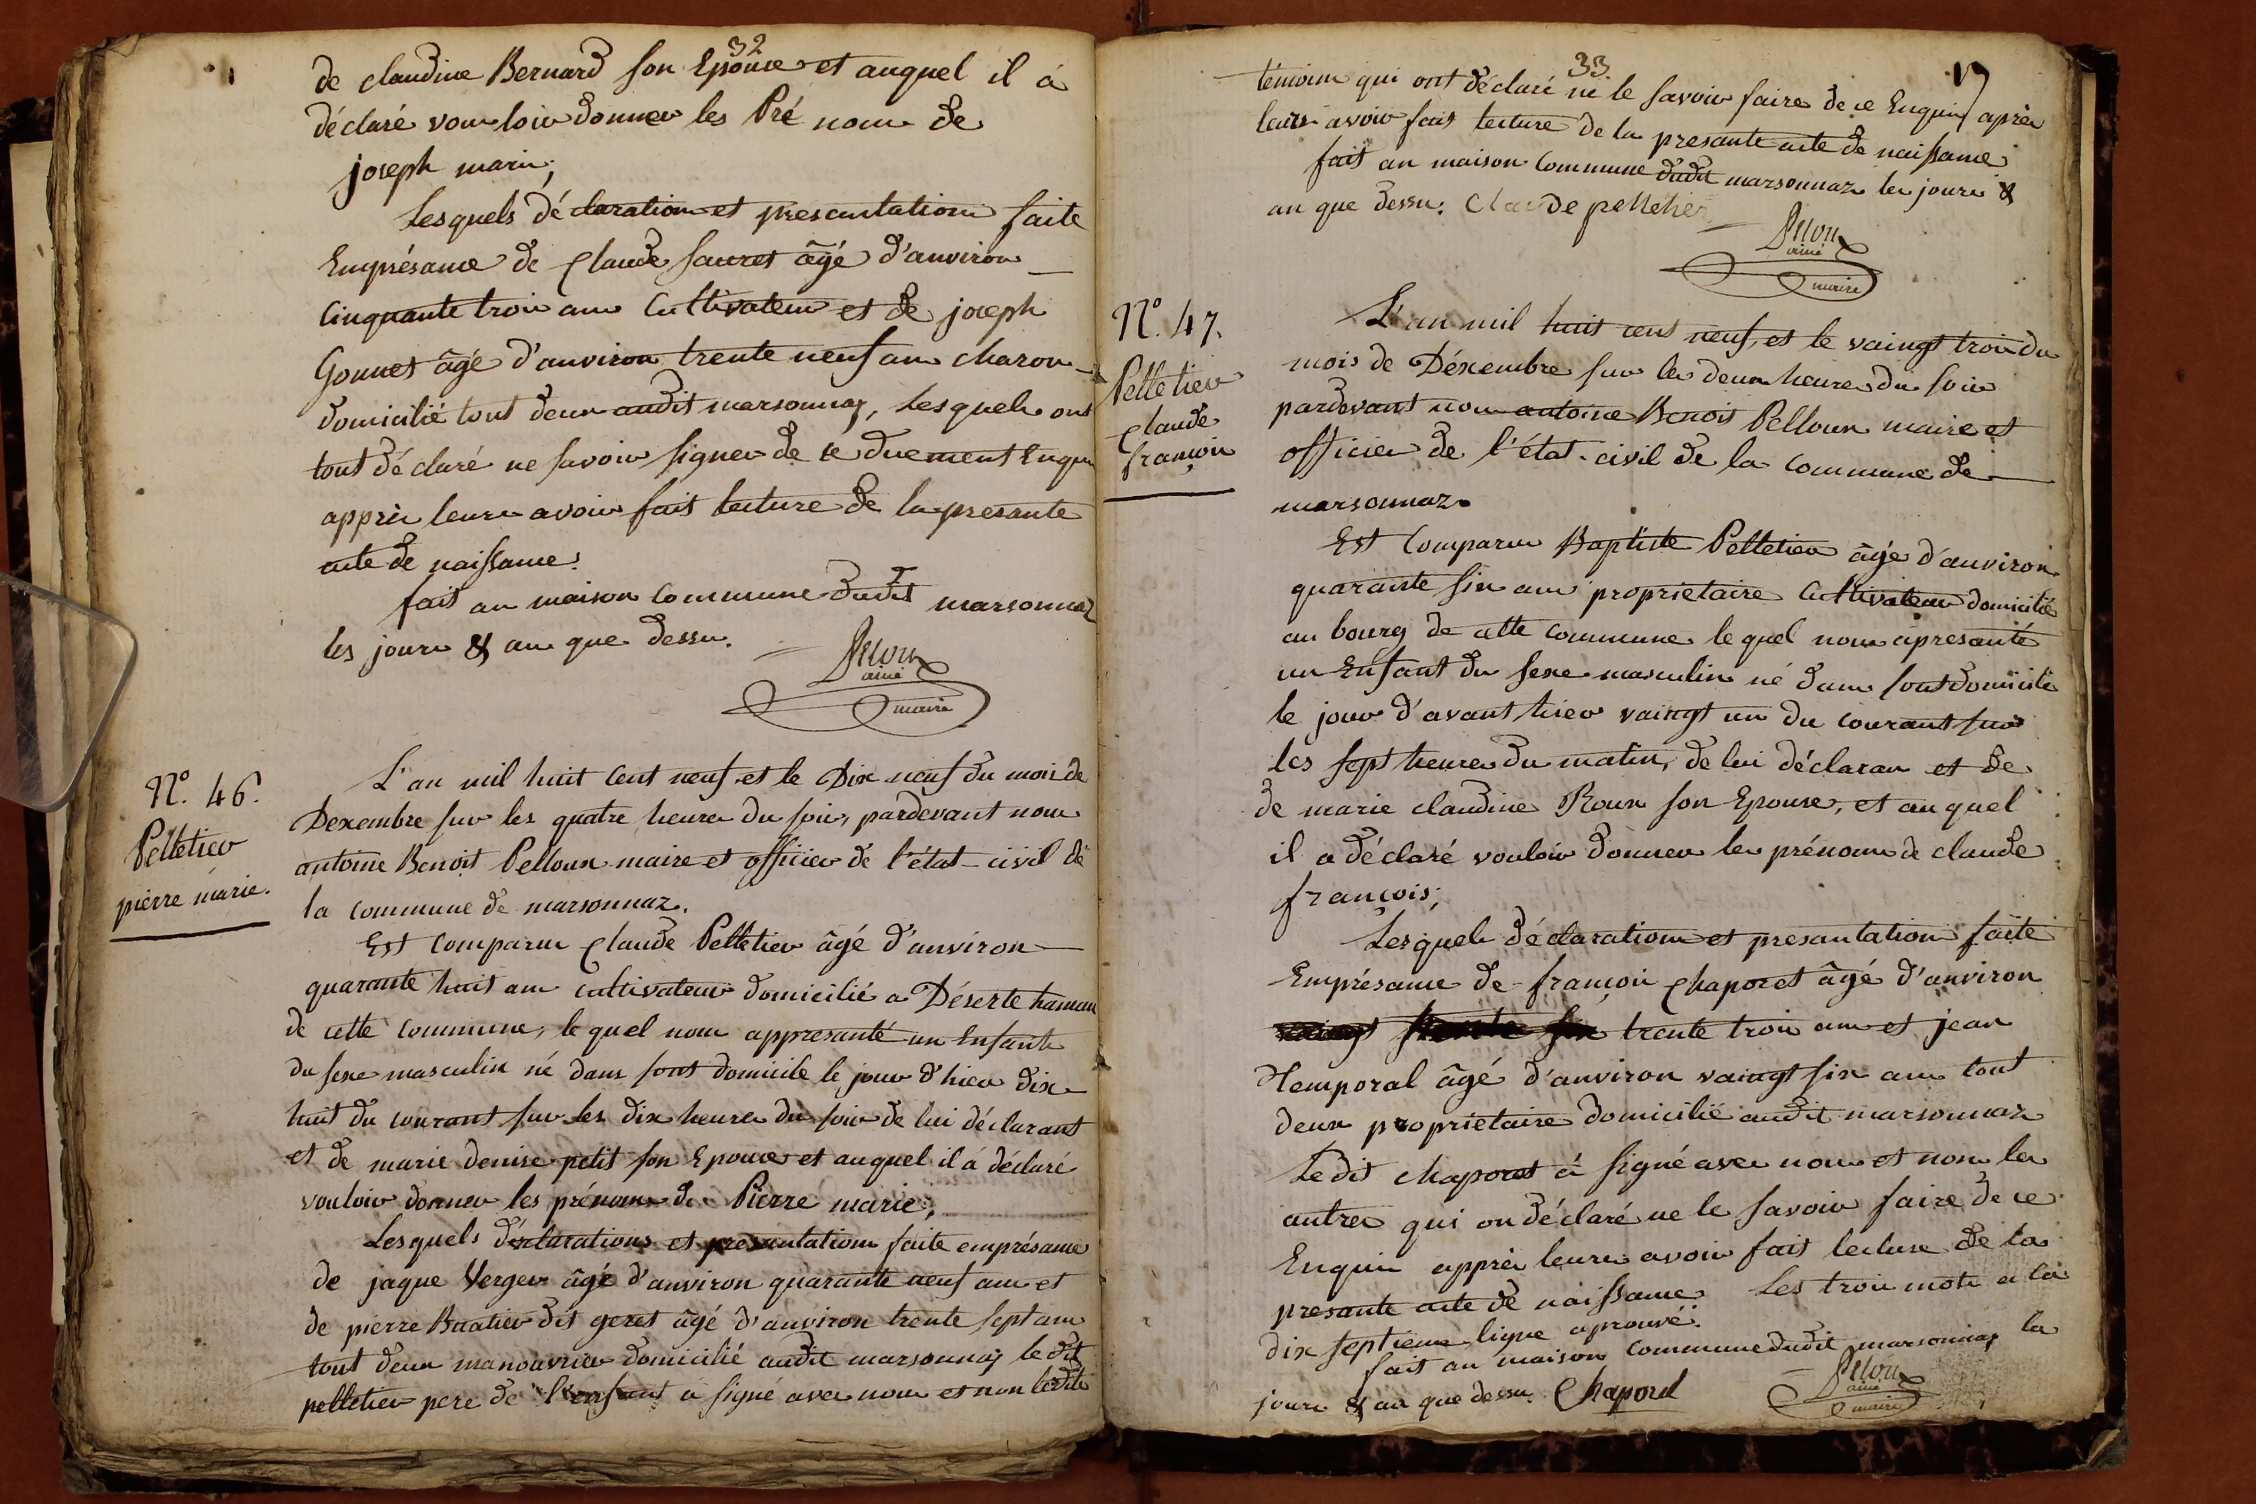 32
de claudine Bernard son Epouse et auquel il á
déclaré vouloir donner les Pré nom de
joseph marie;
Lesquels déclaration et presentation faite
Emprésance de Claude Sauret âgé d'anviron
Cinquante trois ans Cultivateur et de joseph
Gonnet âgé d'anviron trente neuf ans charon
domicilié tout deux audit marsonnaz, Lesquels ont
tout déclaré ne savoir signer de ce duement Enquis
apprés leurs avoir fait lecture de la presante
acte de naissance.
fait an maison Commune dudit marsonnaz
les jours & an que dessus.
Pelloux
ainé
maire
N.º 46.
Pelletier
pierre marie.
L'an mil huit Cent neuf et le Dix neuf du mois de
Dexembre sur les quatre heures du soir, pardevant nous
antoine Benoit Pelloux maire et officier de l'état civil de
la commune de marsonnaz.
Est comparu Claude Pelletier âgé d'anviron
quarante huit ans cultivateur domicilié a Déserte hamau
de cette commune, le quel nous appresanté un Enfant
du sexe masculin né dans sont domicile le jour d'hier dix
huit du courant sur les dix heures du soir de lui déclarant
et de marie denise petit son Epouse et auquel il á déclaré
vouloir donner les prénoms de Pierre marie;
Lesquels déclarations et presantation faite emprésance
de jaque Verger âgé d'anviron quarante neuf ans et
de pierre Buatier dit geret âgé d'anviron trente sept ans
tout deux manouvrier domicilié audit marsonnaz le dit
pelletier pere de l'enfant á signé avec nous et non lesdits
33
17
témoins qui ont déclaré ne le savoir faire de ce Enquis apprés
leurs avoir fait lecture de la presante acte de naissance
fait an maison Commune dudit marsonnaz les jours &
an que dessus. Claude pelletier
Pelloux
ainé
maire
N.º 47.
Pelletier
Claude
françois
L'an mil huit cent neuf, et le vaingt trois du
mois de Déxembre sur les deux heures du soir
pardevant nous antoine Benoit Pelloux maire et
officier de l'état civil de la commune de
marsonnaz.
Est Comparu Baptiste Pelletier âgé d'anviron
quarante six ans propriétaire Cultivateur domicilié
au bourg de cette commune le quel nous apresanté
un Enfant du sexe masculin né dans sont domicile
le jour d'avant hier vaingt un du courant sur
les sept heures du matin, de lui déclaran et de
de marie claudine Roux son Epouse, et au quel
il a déclaré vouloir donner les prénoms de claude
françois;
Lesquels déclaration et presantation faite
Emprésance de françois Chaporet âgé d'anviron
trente trois ans et jean
Temporal âgé d'anviron vaingt six ans tout
deux propriétaire domicilié audit marsonnaz
Ledit chaporet á signé avec nous et non les
autres qui on déclaré ne le savoir faire de ce
Enquis apprés leurs avoir fait lecture de la
presante acte de naissance. Les trois mots a la
dix septieme ligne aprouvé.
fait an maison commune dudit marsonnaz les
jours & an que dessus. Chaporel
Pelloux
ainé
maire